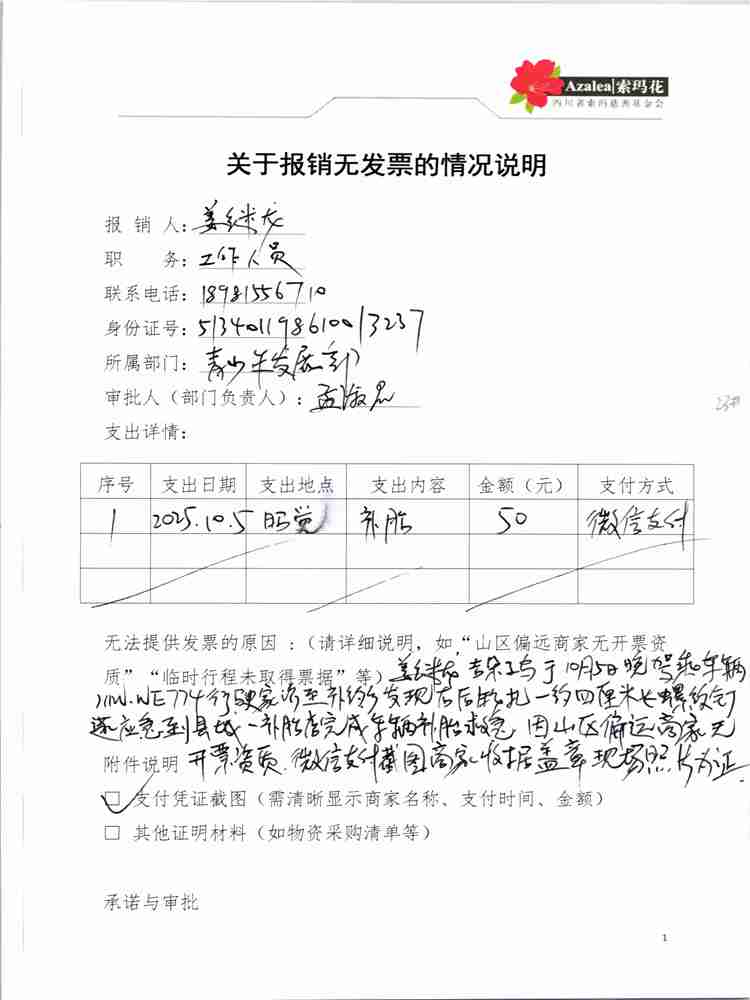 Azalea|索玛花
四川省索玛慈善基金会
关于报销无发票的情况说明
报 销 人: 姜继龙
职 务: 工作人员
联系电话: 18981556710
身份证号: 513401198610013237
所属部门: 青少年发展部
审批人（部门负责人）: 孟
支出详情:
23#
序号 支出日期 支出地点 支出内容 金额（元） 支付方式
1 2025.10.5 昭觉 补胎 50 微信支付
无法提供发票的原因 :（请详细说明，如“山区偏远商家无开票资
质”“临时行程未取得票据”等） 姜继龙, 于10月5日晚驾乘车辆
川W.WE774行驶 至 发现右后胎扎一约四厘米长螺纹钉
遂应急到县城一补胎店完成车辆补胎 因山区偏远商家无
附件说明 开票资质、微信支付截图商家收据盖章现场照片为证
☑ 支付凭证截图（需清晰显示商家名称、支付时间、金额）
□ 其他证明材料（如物资采购清单等）
承诺与审批
1